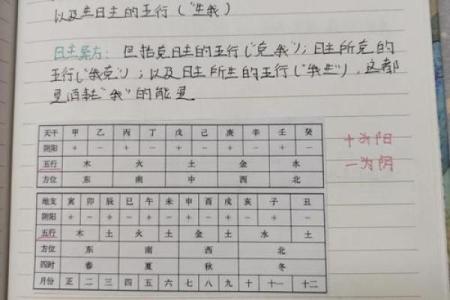 以及生日主的五行（“生我）
日主异方：包括克日主的五行（“克我”）；日主所克的
五行（“我克”）；以及日主所生的五行（“我生”），这都
是消耗“我”的能量
天干 甲 乙 丙 丁 戊 己 庚 辛 壬 癸
阴阳 + − + − + − + − + −
五行 木 火 土 金 水
方位 东 南 中 西 北
十为阳
一为阴
地支 寅 卯 辰 巳 午 未 申 酉 戌 亥 子 丑
阴阳 + − + − + − + − + − + −
五行 木 土 火 土 金 土 水 土
方位 东 南 西 北
四时 春 夏 秋 冬
月份 正 二 三 四 五 六 七 八 九 十 十一 十二